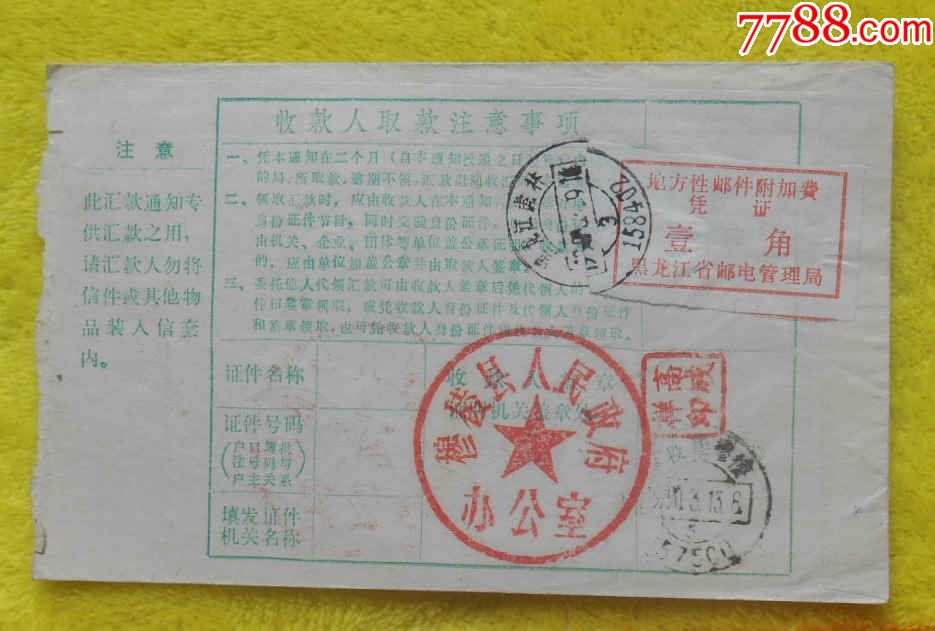 7788.com
收款人取款注意事项
注意
此汇款通知专
供汇款之用,
请汇款人勿将
信件或其他物
品装入信套
内。
一、凭本通知在二个月(自本通知投递之日
的局,所取款,逾期不领,汇款退还收汇
二、领取汇款时,应由收款人在本通知
身份证件节目,同时交验身份证件。
由机关、企业、团体等单位盖公章证明
的,应由单位加盖公章并由取款人签章
三、委托他人代领汇款可由收款人签章后凭代领人的
件印签章领取,或凭收款人身份证件及代领人身份证件
和签章领取,也可凭收款人身份证件
158402
地方性邮件附加费
凭证
壹角
黑龙江省邮电管理局
证件名称
收
章
证件号码
(户口簿批
注号码与
户主关系)
机关盖章处
填发证件
机关名称
穆棱县人民政府
办公室
高凌
如祥
3.13.6